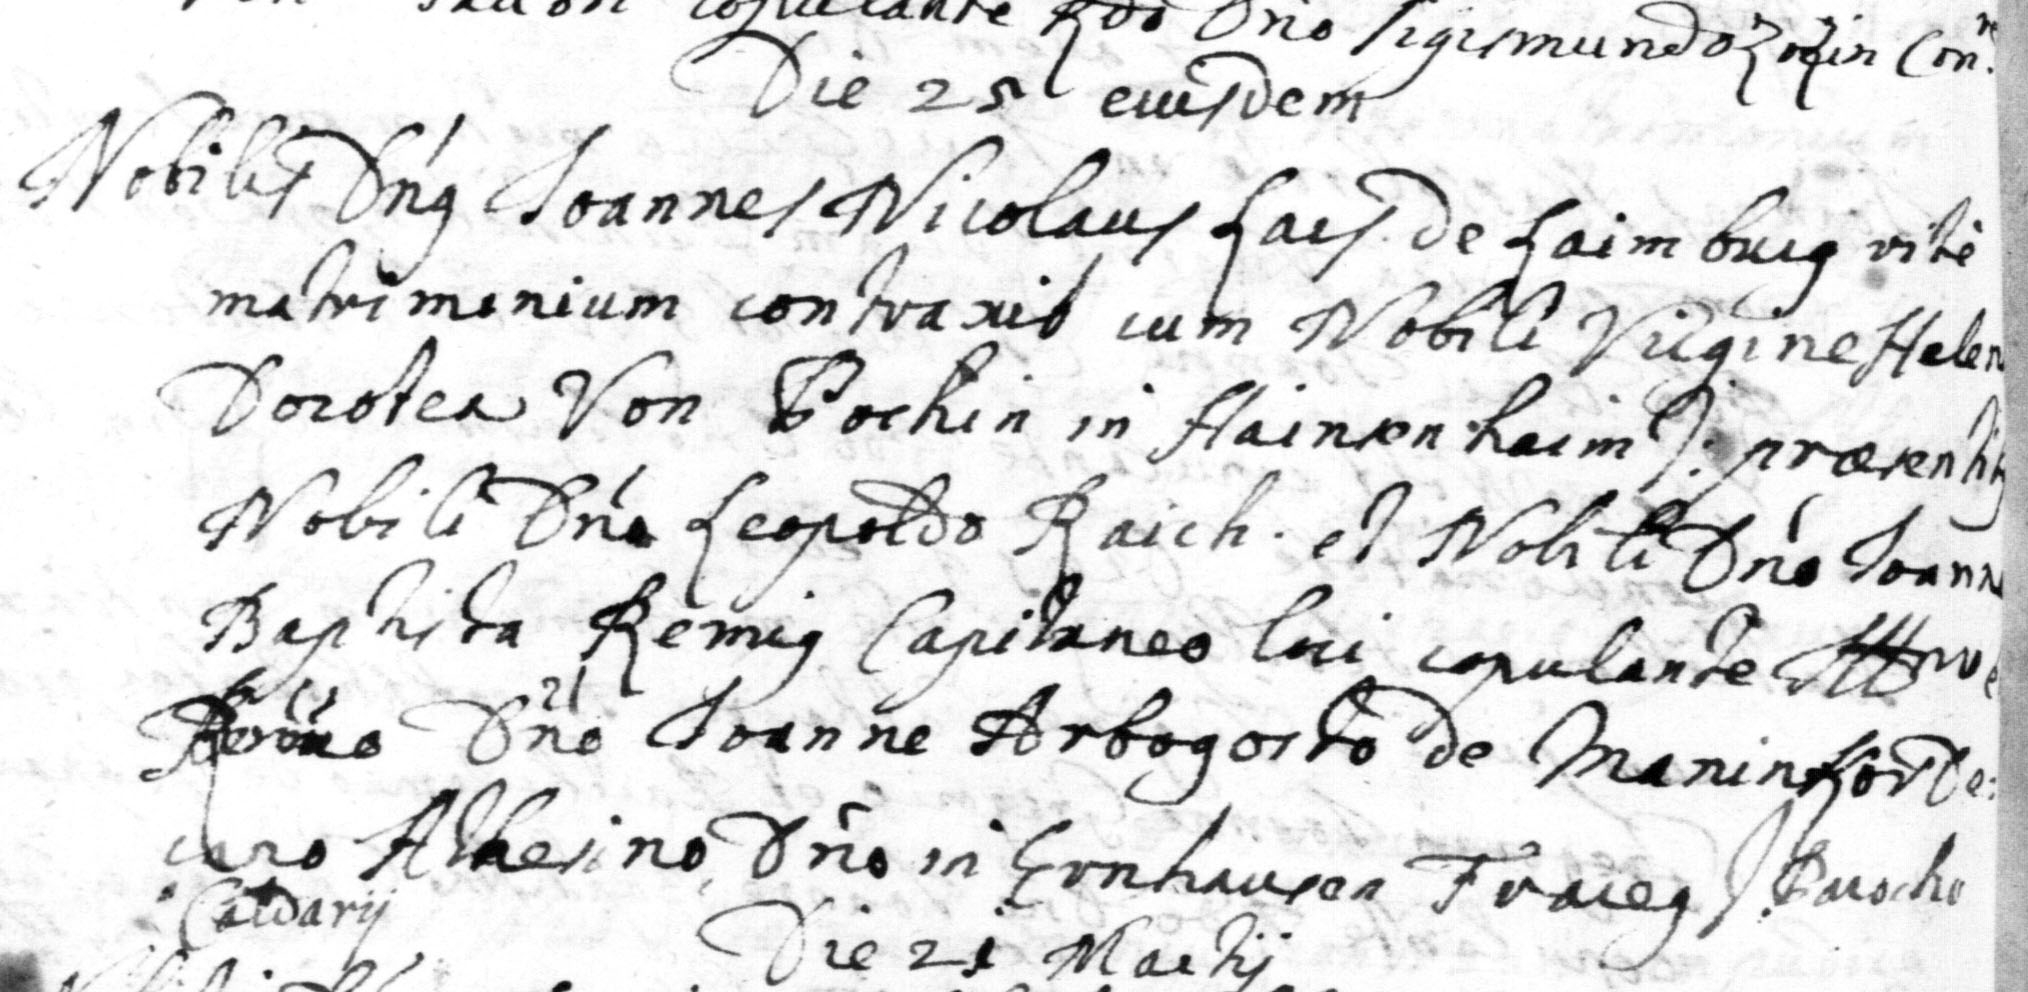 copulante Rdo Dno Sigismundo Con.
Die 25 eiusdem
Nobilis Dng Joannes Nicolaus Lais de Laimburg ritè
matrimonium contraxit cum Nobili Virgine Helen
Dorotea Von Pochin in Hainsenhaim J. præsentib
Nobili Dno Leopoldo Raich. et Nobili Dno Joanne
Baptista Remig Capitaneo loci copulante
Dno Joanne Arbogasto de Maninkor De:
cano Athesino, Dno in Ernhausen Fraieg J. Parocho
Caldarij
Die 21 Martij